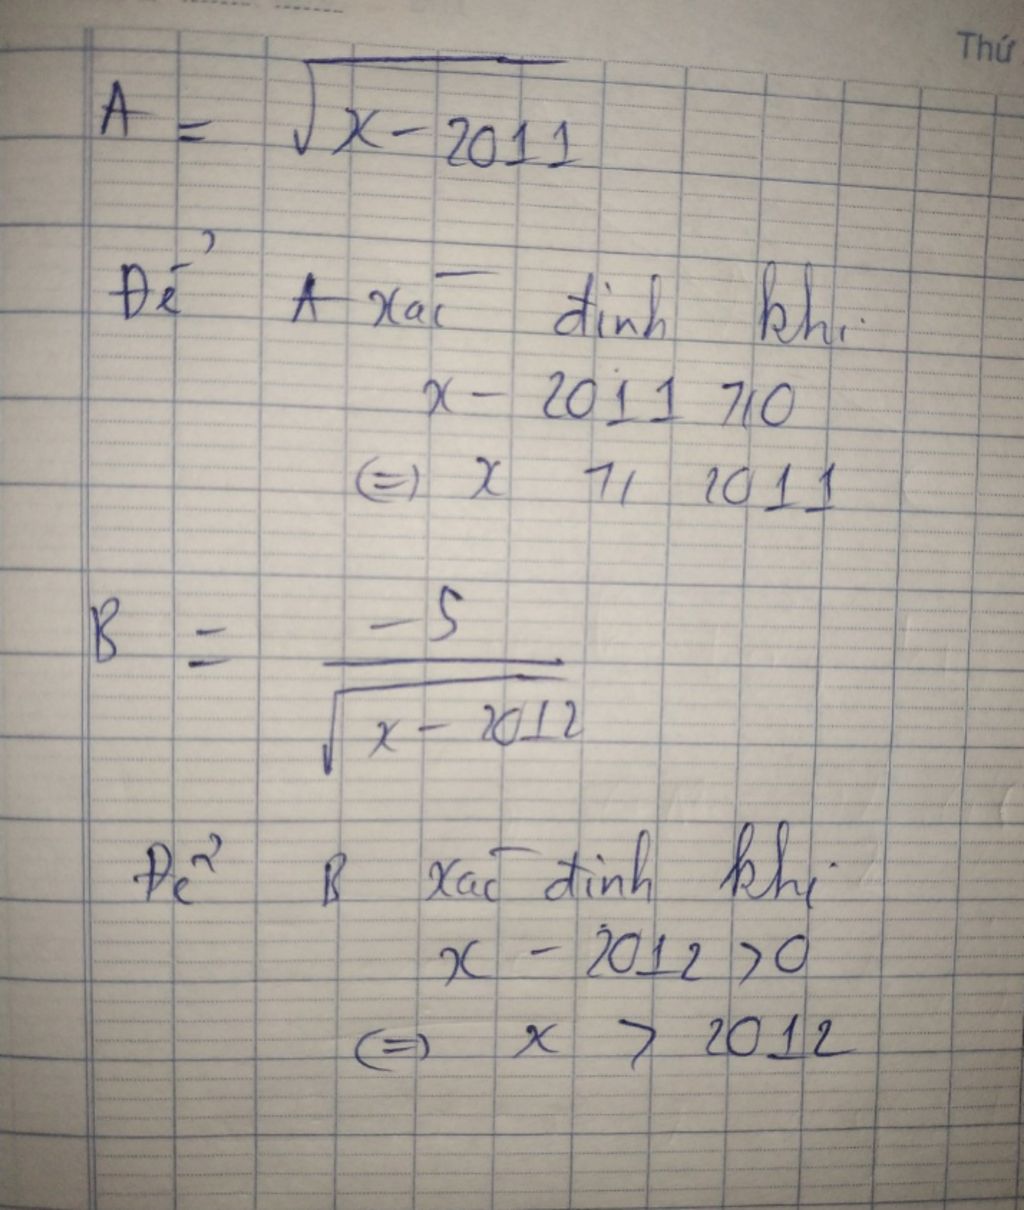 Thứ
A = √x - 2011
Để A xác định khi
x - 2011 ⩾ 0
(=) x ⩾ 2011
B = -5 / √x - 2012
Để B xác định khi
x - 2012 > 0
(=) x > 2012